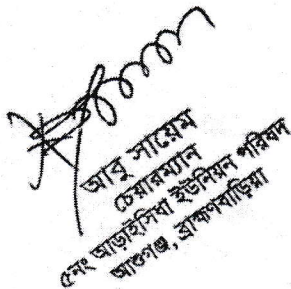 আবু সায়েম
চেয়ারম্যান
৫নং আড়াইসিধা ইউনিয়ন পরিষদ
আশুগঞ্জ, ব্রাহ্মণবাড়িয়া